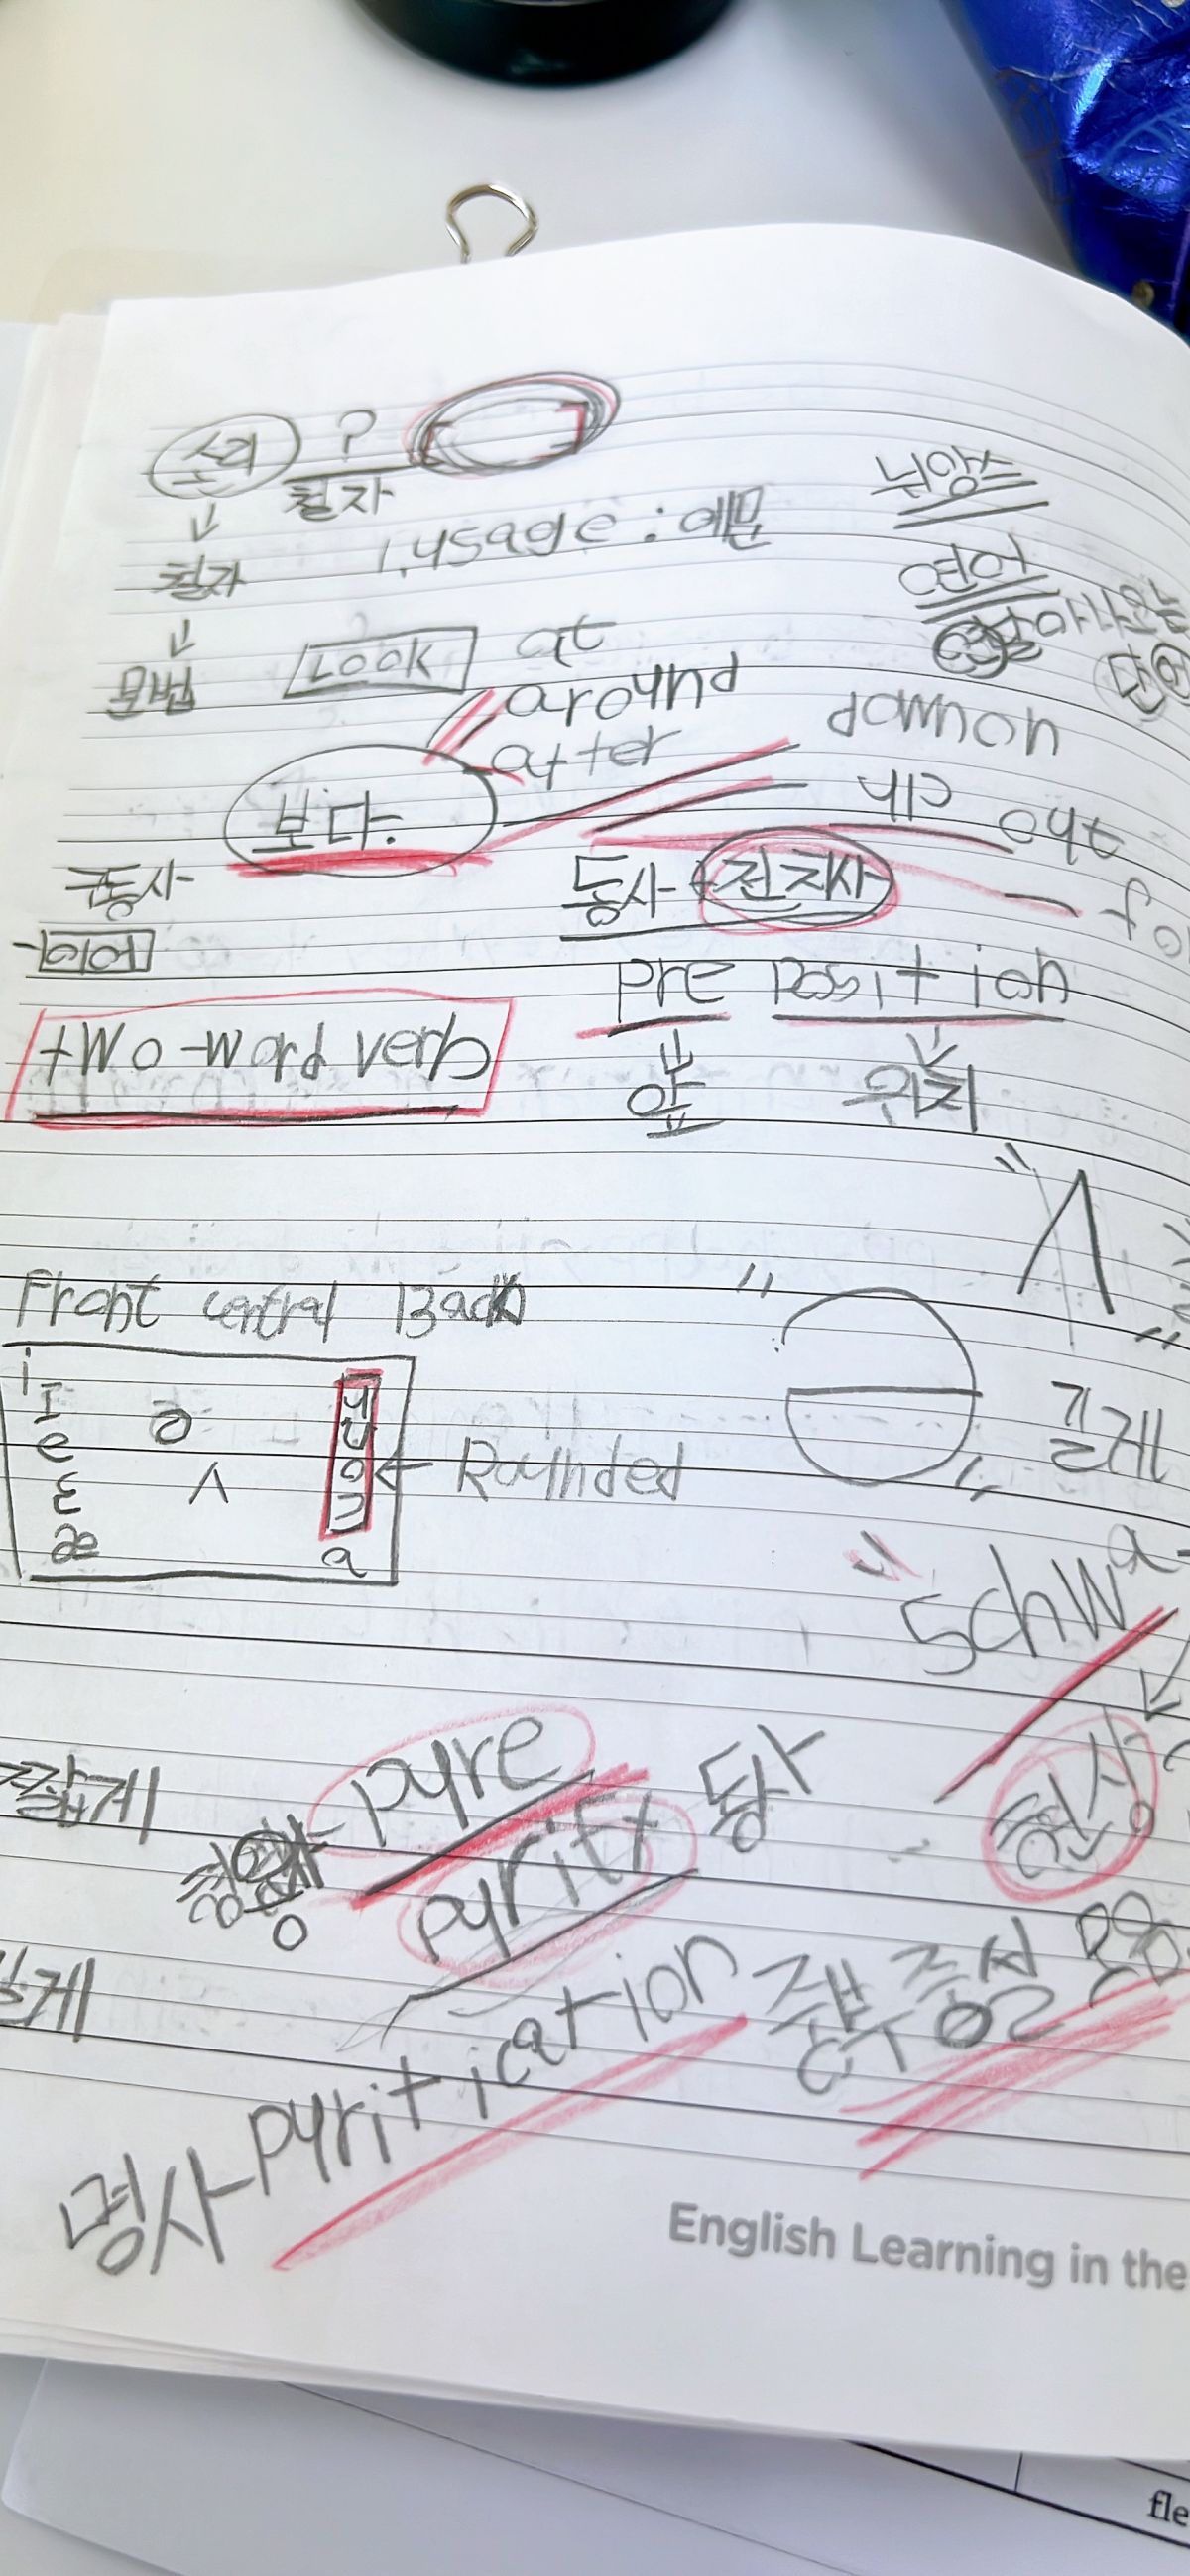 소리 ? [ ]
철자
철자
1. usage : 예문
뉘앙스
연어
문법
Look at
around
after
down on
보다.
up
out
구동사
동사 + 전치사
이어
pre position
two-word verb
앞 위치
Front central Back
ʌ
i
ɪ ə u
e ʊ
ɛ ʌ o ← Rounded
æ a
길게
schwa
짧게
pure
purify 동사
현상
명사 purification
English Learning in the
fle